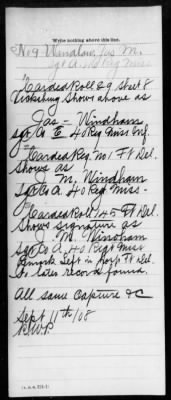 Write nothing above this line.
No 9 Windom, Jas M.
Sgt A. 40 Reg Miss
Cards Roll 29 sheet 8
Vicksburg Shows above as
Jas - Windham
Sgt Co E 40 Reg Miss Inf.
Cards Reg. No 1 Ft Del.
shows as
M. Windham
Sgt Co A. 40 Reg Miss.
Cards Roll 145 Ft Del.
Shows signature as
M. Windham
Sgt Co A. 40 Regt Miss
Remark Left in Hosp Ft Del.
No later record found.
All same Capture &c
Sept 11th/08